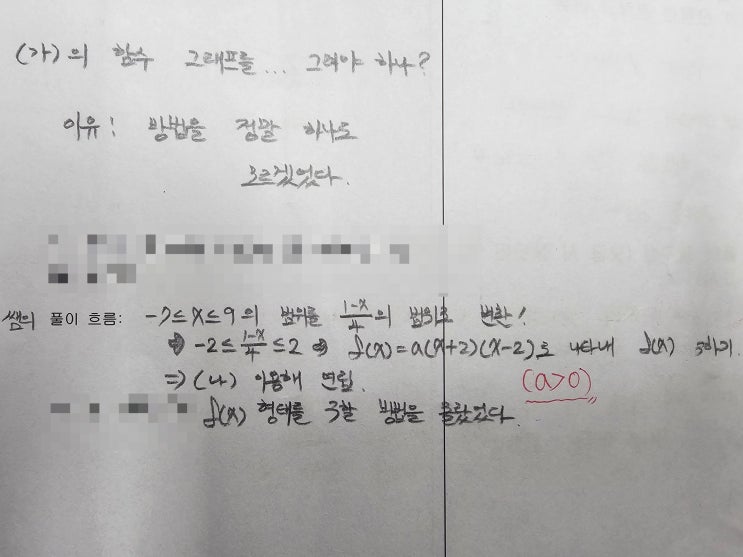 (가)의 함수 그래프를... 그려야 하나?
이유: 방법을 정말 하나도
모르겠었다.
쌤의 풀이 흐름: -7≤x≤9의 범위를 (1-x)/4의 범위로 변환!
⇒ -2≤(1-x)/4≤2 ⇒ f(x)=a(x+2)(x-2)로 나타내 f(x) 구하기.
⇒ (나) 이용해 연립. (a>0)
f(x) 형태를 구할 방법을 몰랐었다.